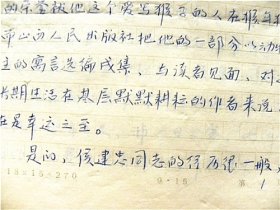 的示崖被他这个爱写猴子的人在猴年
平山西人民出版社把他的一部分以动物
主的寓言选编成集、与读者见面，对这
长期生活在基层默默耕耘的作者来说，
在是幸运之至。
是的，侯建忠同志的经历很一般，
18×15=270
9·15
第 1